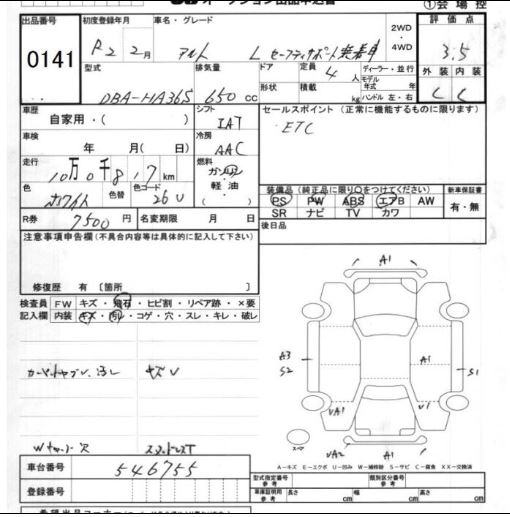 オークション出品申込書 ①会場控
出品番号 初度登録年月 車名・グレード 2WD ・ 4WD 評価点
0141 R2 2月 アルト L セーフティサポート装着車 3.5
型式 排気量 ドア 定員 4人 ディーラー・並行 外装 内装
DBA-HA36S 650cc 形状 積載 kg モデル年式 年式 ハンドル 左・右 C C
車歴 自家用・( ) シフト IAT セールスポイント(正常に機能するものに限ります)
車検 年 月(日) 冷房 AAC ETC
走行 10万0千817km 燃料 ガソリン ・ 軽油 ・ ( )
色 ホワイト 色替 色コード 26U
装備品(純正品に限り○をつけてください) 新車保証書
PS PW ABS エアB AW 有・無
SR ナビ TV カワ
R券 7500円 名変期限 月 日 後日品
注意事項申告欄(不具合内容等は具体的に記入して下さい)
修復歴 有 〔箇所 〕
検査員記入欄 FW キズ・飛石・ヒビ割・リペア跡・×要
内装 キズ・汚れ・コゲ・穴・スレ・キレ・破レ
A1
A3 S2 A1 S1
UA1 U1
スペア UA2 A1
A-キズ E-エクボ U-凹み W-補修跡 S-サビ C-腐食 XX-交換済
車台番号 546755
登録番号
型式指定番号 参考 類別区分番号 参考
車庫証明用 参考 長さ cm 幅 cm 高さ cm